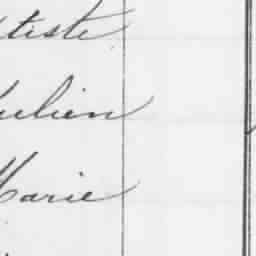 tiste
ulien
Marie